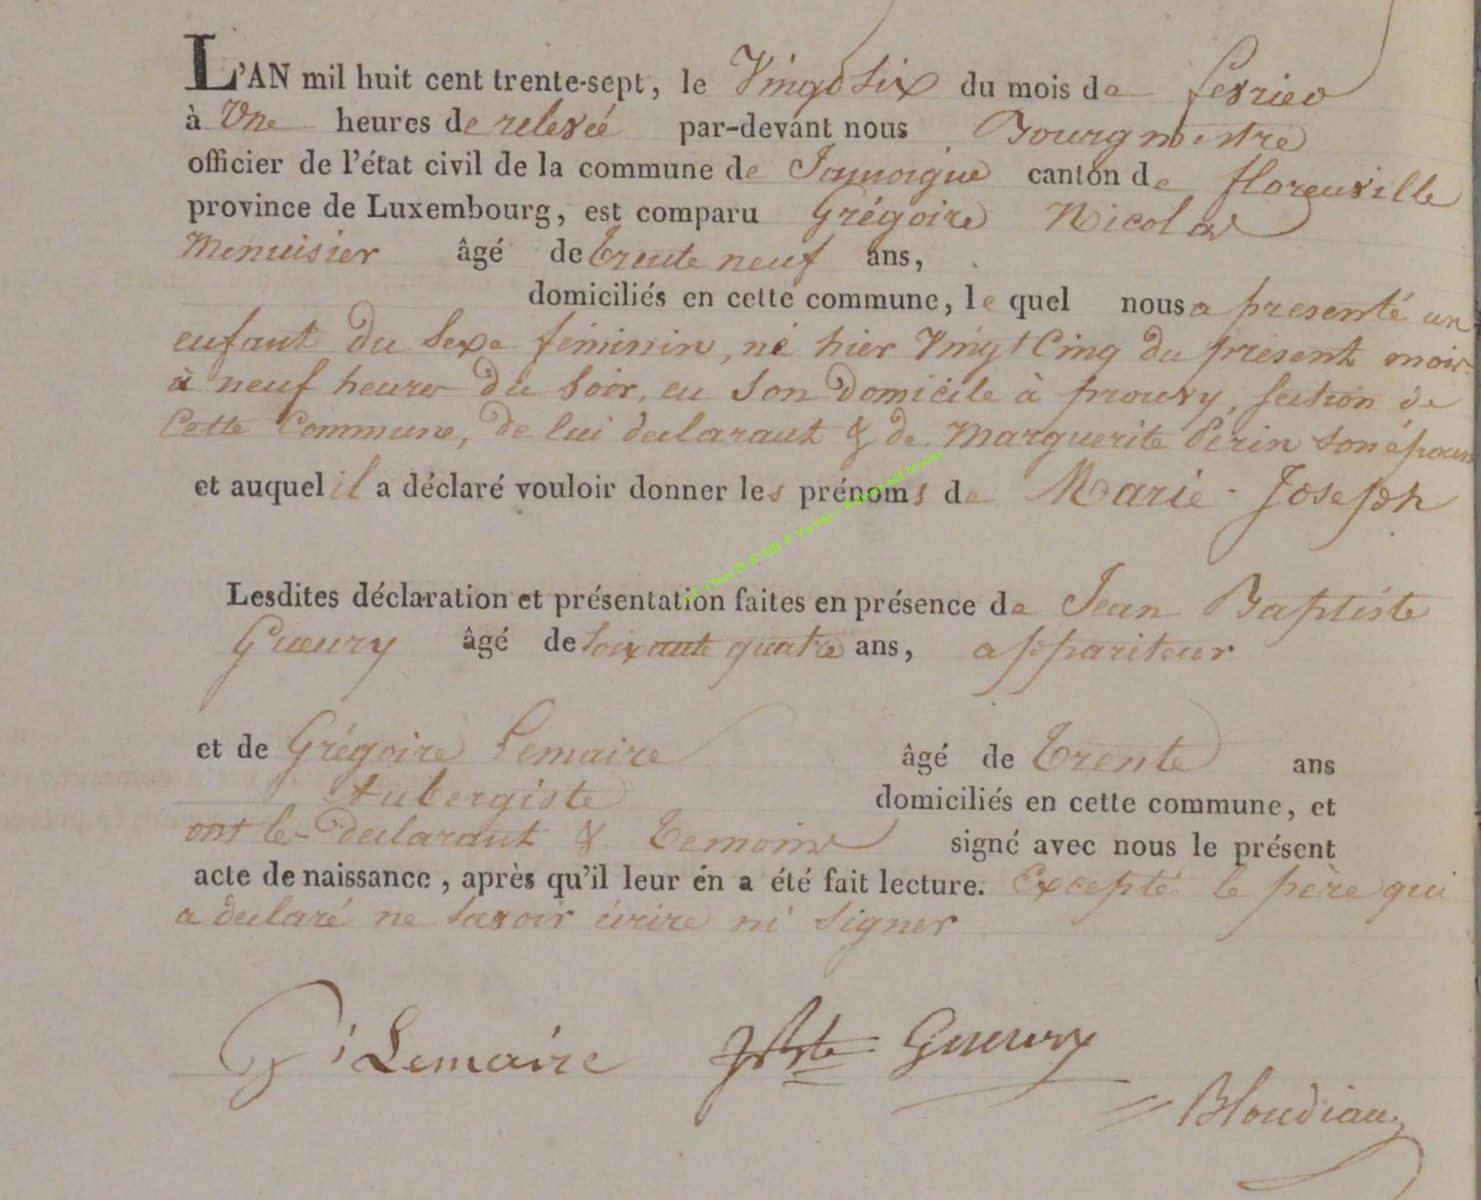 L'AN mil huit cent trente-sept, le Vingt Six du mois de fevrier
à Une heures de relevée par-devant nous Bourgmestre
officier de l'état civil de la commune de Jamoigne canton de florenville
province de Luxembourg, est comparu Grégoire Nicolas
Menuisier âgé de trente neuf ans,
domiciliés en cette commune, le quel nous a presenté un
enfant du Sexe féminin, né hier Vingt Cinq du présent mois
à neuf heures du Soir, en Son Domicile à prouvy, section de
Cette Commune, de lui declarant & de Marguerite Perin son épouse
et auquel il a déclaré vouloir donner les prénoms de Marie-Joseph
Lesdites déclaration et présentation faites en présence de Jean Baptiste
Gueury âgé de Soixante quatre ans, appariteur
et de Grégoire Lemaire âgé de trente ans
Aubergiste domiciliés en cette commune, et
ont le declarant & temoins signé avec nous le présent
acte de naissance, après qu'il leur en a été fait lecture. Excepté le père qui
a declaré ne savoir écrire ni signer
G Lemaire JBte Gueury
Blondiau